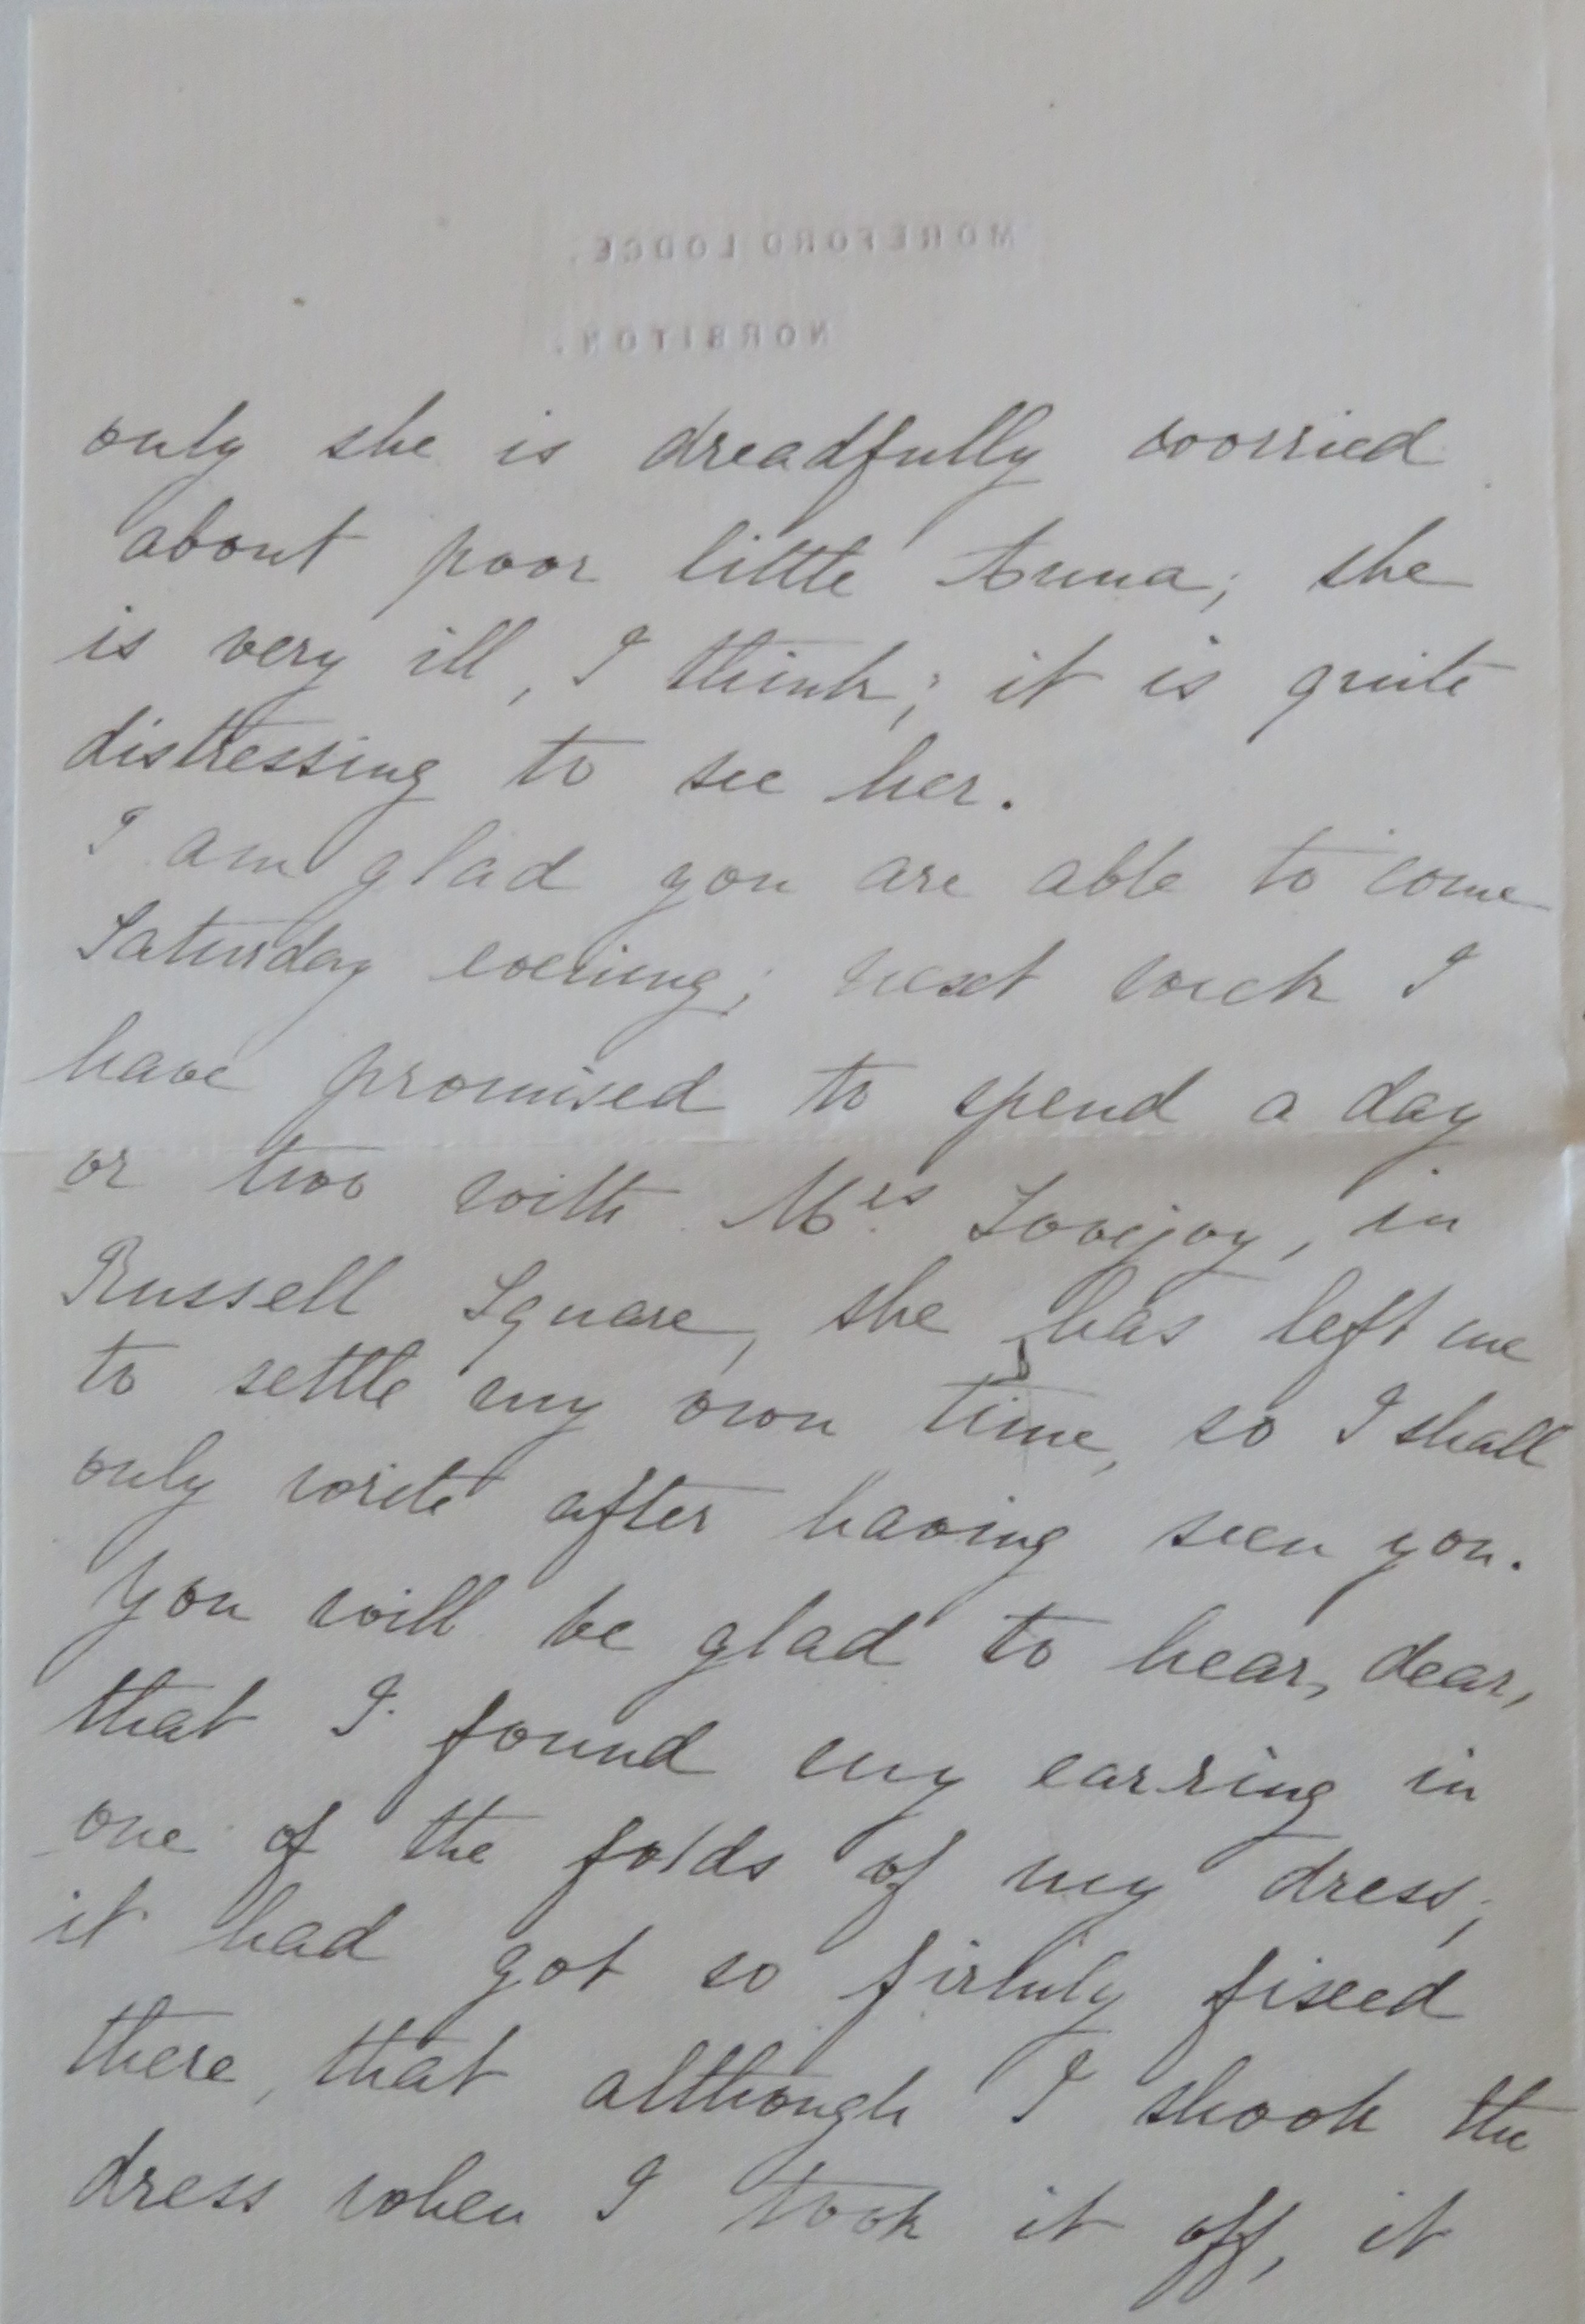 MOREFORD LODGE.
NORBITON.
only she is dreadfully worried
about poor little Anna; she
is very ill, I think; it is quite
distressing to see her.
I am glad you are able to come
Saturday evening; next week I
have promised to spend a day
or two with Mrs Lovejoy, in
Russell Square, she has left me
to settle my own time, so I shall
only write after having seen you.
You will be glad to hear, dear,
that I found my earring in
one of the folds of my dress;
it had got so firmly fixed
there, that although I shook the
dress when I took it off, it